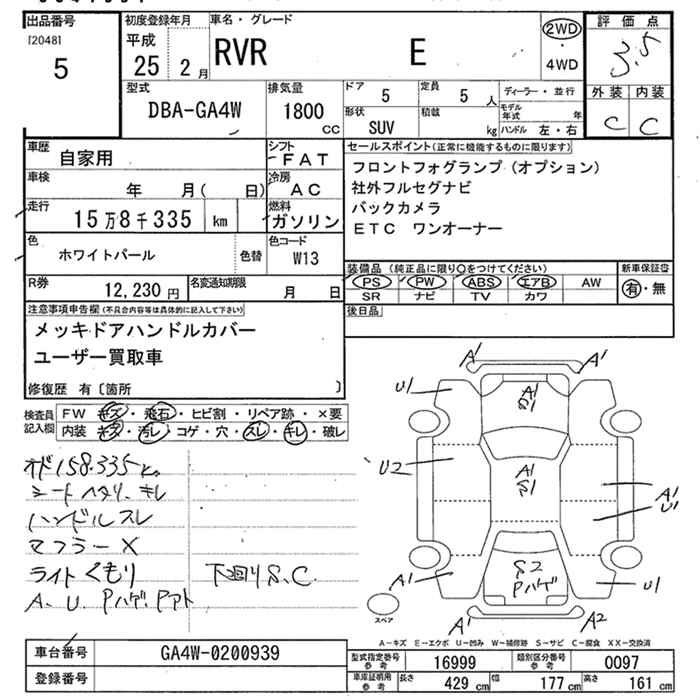 出品番号
[2048]
5
初度登録年月
平成
25 2月
車名・グレード
RVR E
2WD
・
4WD
評価点
3.5
外装 内装
C C
型式
DBA-GA4W
排気量
1800
CC
ドア
5
定員
5 人
形状
SUV
積載
kg
ディーラー・並行
モデル年式 年
ハンドル 左・右
車歴
自家用
シフト
FAT
車検
年 月( 日)
冷房
AC
走行
15万8千335 km
燃料
ガソリン
色
ホワイトパール
色替
色コード
W13
R券
12,230円
名変通知期限
月 日
セールスポイント(正常に機能するものに限ります)
フロントフォグランプ(オプション)
社外フルセグナビ
バックカメラ
ETC ワンオーナー
装備品(純正品に限り○をつけてください)
PS PW ABS エアB AW
SR ナビ TV カワ
新車保証書
有・無
後日品
注意事項申告欄(不具合内容等は具体的に記入して下さい)
メッキドアハンドルカバー
ユーザー買取車
修復歴 有〔箇所 〕
検査員記入欄
FW キズ・飛石・ヒビ割・リペア跡・×要
内装 キズ・汚レ・コゲ・穴・スレ・キレ・破レ
オド158.335K
シートヘタリ、キレ
ハンドルスレ
マフラーX
ライトくもり
下廻りS.C.
A1 A1
U1 U1
A1
S1
U2
A1
S1
A1
U1
A1
S2
Pハゲ
U1
A1 A2
スペア
A-キズ E-エクボ U-凹み W-補修跡 S-サビ C-腐食 XX-交換済
車台番号 GA4W-0200939
登録番号
型式指定番号 参考 16999
類別区分番号 参考 0097
車庫証明用 参考 長さ 429 cm 幅 177 cm 高さ 161 cm